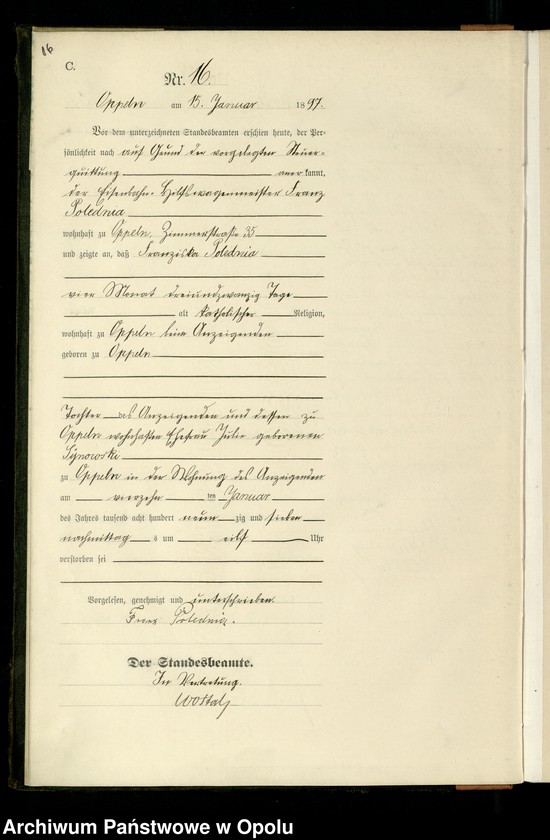 16
C.
Nr. 16.
Oppeln am 15. Januar 1897.
Vor dem unterzeichneten Standesbeamten erschien heute, der Per-
sönlichkeit nach auf Grund der vorgelegten Steuer-
quittung anerkannt,
der Eisenbahn-Hilfswagenmeister Franz
Polednia
wohnhaft zu Oppeln, Zimmerstraße 35
und zeigte an, daß Franziska Polednia
vier Monat dreiundzwanzig Tage
alt katholischer Religion,
wohnhaft zu Oppeln beim Anzeigenden
geboren zu Oppeln
Tochter des Anzeigenden und dessen zu
Oppeln wohnhaften Ehefrau Julie geborenen
zu Oppeln in der Wohnung des Anzeigenden
am vierzehn ten Januar
des Jahres tausend acht hundert neun zig und sieben
nachmittags um elf Uhr
verstorben sei
Vorgelesen, genehmigt und unterschrieben.
Franz Polednia.
Der Standesbeamte.
In Vertretung.
Archiwum Państwowe w Opolu